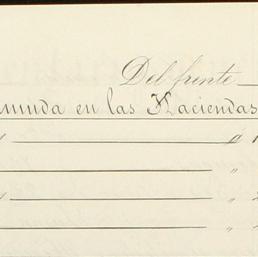 Del frente
en las Haciendas